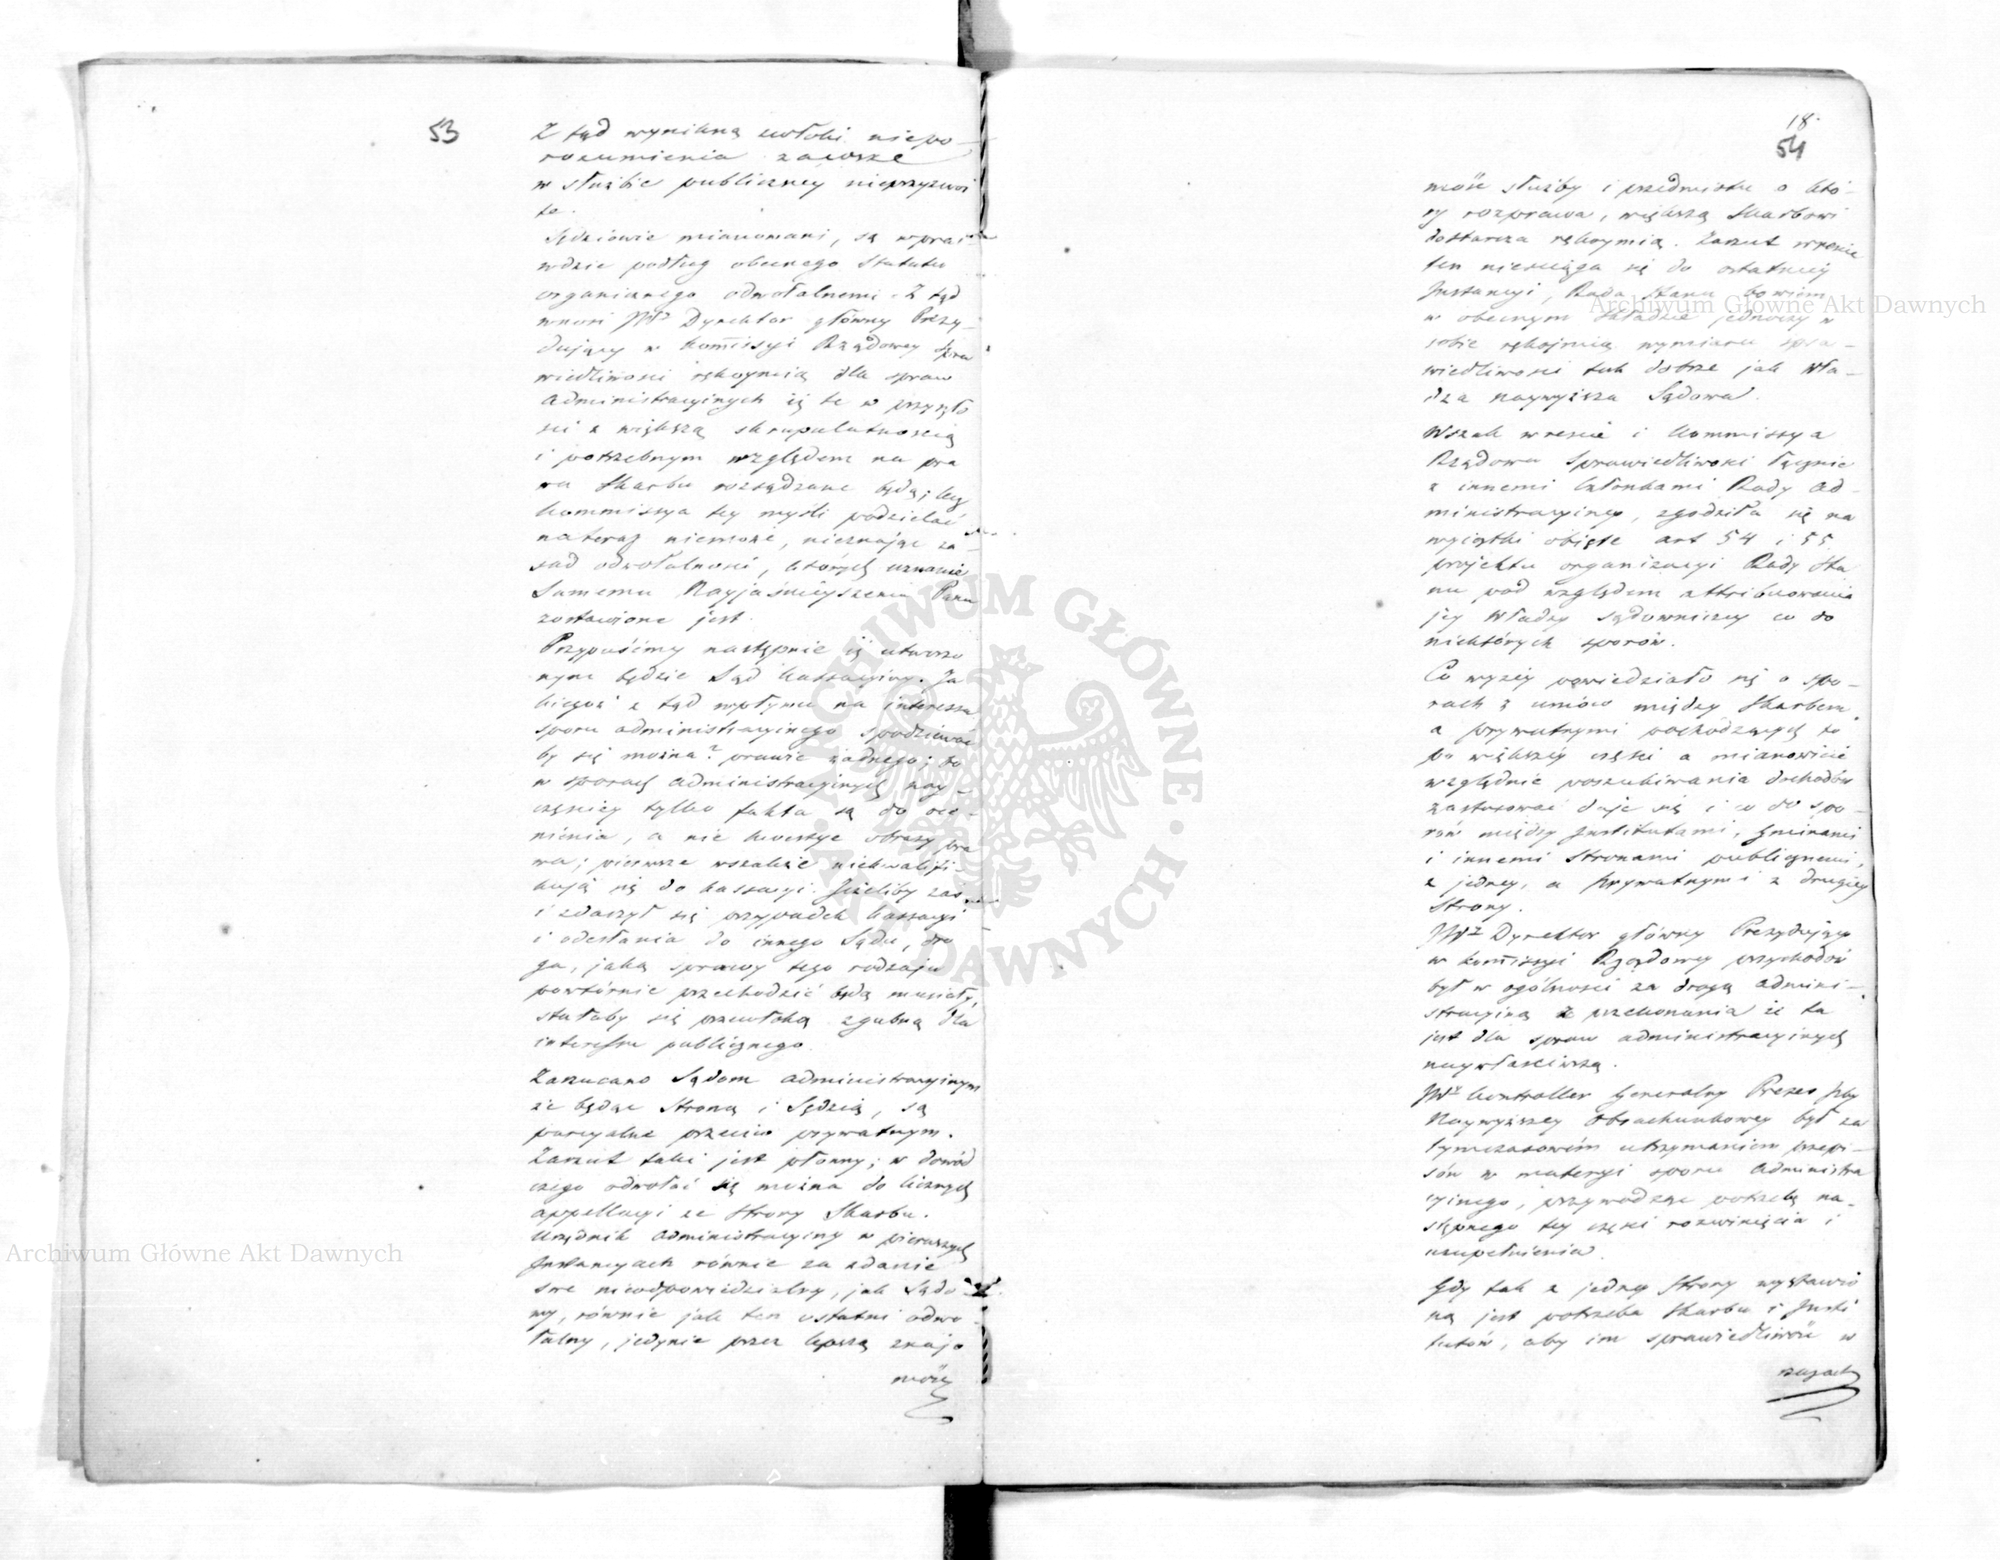 53
Z tąd wynikną zwłoki niepo-
rozumienia zawsze
w służbie publiczney nieprzyzwoi
te.
Sędziowie mianowani, są wpra-
wdzie podług obecnego Statutu
organicznego odwołalnemi. Z tąd
wnosi JWny Dyrektor główny Prezy-
dujący w Kommissyi Rządowey Spra
wiedliwości rękoymią dla spraw
administracyjnych iż te w przyszło
ści z większą skrupulatnością
i potrzebnym względem na pra
wa Skarbu rozsądzane będą; lecz
Kommissya tey myśli podzielać
nateraz niemoże, nieznając za-
sad odwołalności, których uznanie
Samemu Nayjaśnieyszemu Panu
zostawione jest.
Przypuśćmy następnie iż utworzo
nym będzie Sąd Kassacyiny. Ja
kiegoż z tąd wpływu na interessa
sporu administracyinego spodziewać
by się można? prawie żadnego; bo
w sporach administracyinych nay-
częściey tylko fakta są do oce-
nienia, a nie kwestye obrazy pra
wa; pierwsze wszakże niekwalifi-
kują się do kassacyi. Jeżeliby zaś
i zdarzył się przypadek kassacyi
i odesłania do innego Sądu, dro
ga, jaką sprawy tego rodzaju
powtórnie przechodzić będą musiały,
stałaby się przewłoką zgubną dla
interessu publicznego.
Zarzucano Sądom administracyinym
że będąc Stroną i Sędzią, są
parcyalne przeciw prywatnym.
Zarzut taki jest płonny; w dowód
czego odwołać się można do licznych
appellacyi ze Strony Skarbu.
Urzędnik administracyiny w pierwszych
Instancyach równie za zdanie
swe nieodpowiedzialny, jak Sądo
wy, równie jak ten ostatni odwo-
łalny, jedynie przez lepszą znajo
mość
18.
54
mość służby i przedmiotu o któ-
ry rozprawa, większą Skarbowi
dostarcza rękoymią. Zarzut wreście
ten nieściąga się do ostatniey
Instancyi, Rada Stanu bowiem
w obecnym składzie jednoczy w
sobie rękojmią wymiaru spra-
wiedliwości tak dobrze jak Wła-
dza naywyższa Sądowa.
Wszak wreście i Kommissya
Rządowa Sprawiedliwości łącznie
z innemi Członkami Rady Ad-
ministracyiney, zgodziła się na
wyiątki obięte art 54 i 55
projektu organizacyi Rady Sta
nu pod względem attribuowania
jey Władzy sądowniczey co do
niektórych sporów.
Co wyżey powiedziało się o spo-
rach z umów między Skarbem
a prywatnymi pochodzących to
po większey części a mianowicie
względnie poszukiwania dochodów
zastosować daje się i co do spo-
rów między Institutami, Gminami
i innemi Stronami publicznemi,
z jedney, a prywatnymi z drugiey
Strony.
JWny Dyrektor główny Prezydujący
w Kommissyi Rządowey przychodów
był w ogólności za drogą admini-
stracyiną z przekonania że ta
jest dla spraw administracyinych
naywłaściwszą.
JWny Kontroller Generalny Prezes Izby
Naywyższey Obrachunkowey był za
tymczasowém utrzymaniem przepi-
sów w materyi sporu administra
cyinego, przywodząc potrzebę na-
stępnego tey części rozwinięcia i
uzupełnienia.
Gdy tak z jedney Strony wystawio
ną jest potrzeba Skarbu i Insti
tutów, aby im sprawiedliwość w